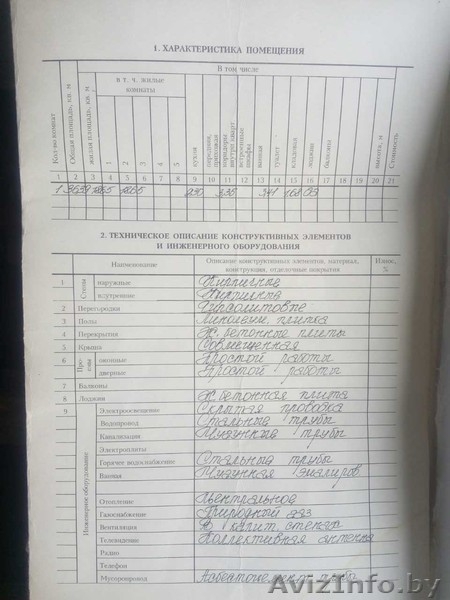 1. ХАРАКТЕРИСТИКА ПОМЕЩЕНИЯ
Кол-во комнат
Общая площадь, кв. м
жилая площадь, кв. м
в т. ч. жилые комнаты
В том числе
кухня
коридоры
шкафы
ванная
туалет
кладовка
лоджия
балконы
высота, м
Стоимость
1 2 3 4 5 6 7 8
1 2 3 4 5 6 7 8 9 10 11 12 13 14 15 16 17 18 19 20 21
2. ТЕХНИЧЕСКОЕ ОПИСАНИЕ КОНСТРУКТИВНЫХ ЭЛЕМЕНТОВ
И ИНЖЕНЕРНОГО ОБОРУДОВАНИЯ
Наименование Описание конструктивных элементов, материал, конструкция, отделочные покрытия Износ, %
1 Стены наружные Кирпичные
внутренние Кирпичные
2 Перегородки
3 Полы Линолеум, плитка
4 Перекрытия Ж. бетонные плиты
5 Крыша Совмещенная
6 Проемы оконные Простой работы
дверные Простой работы
7 Балконы
8 Лоджии Ж. бетонная плита
9 Инженерное оборудование
Электроосвещение Скрытая проводка
Водопровод Стальные трубы
Канализация Чугунные трубы
Электроплиты
Горячее водоснабжение Стальные трубы
Ванная Чугунная эмалиров
Отопление Центральное
Газоснабжение Природный газ
Вентиляция В капит. стенах
Телевидение Коллективная антенна
Радио
Телефон
Мусоропровод
AvizInfo.by